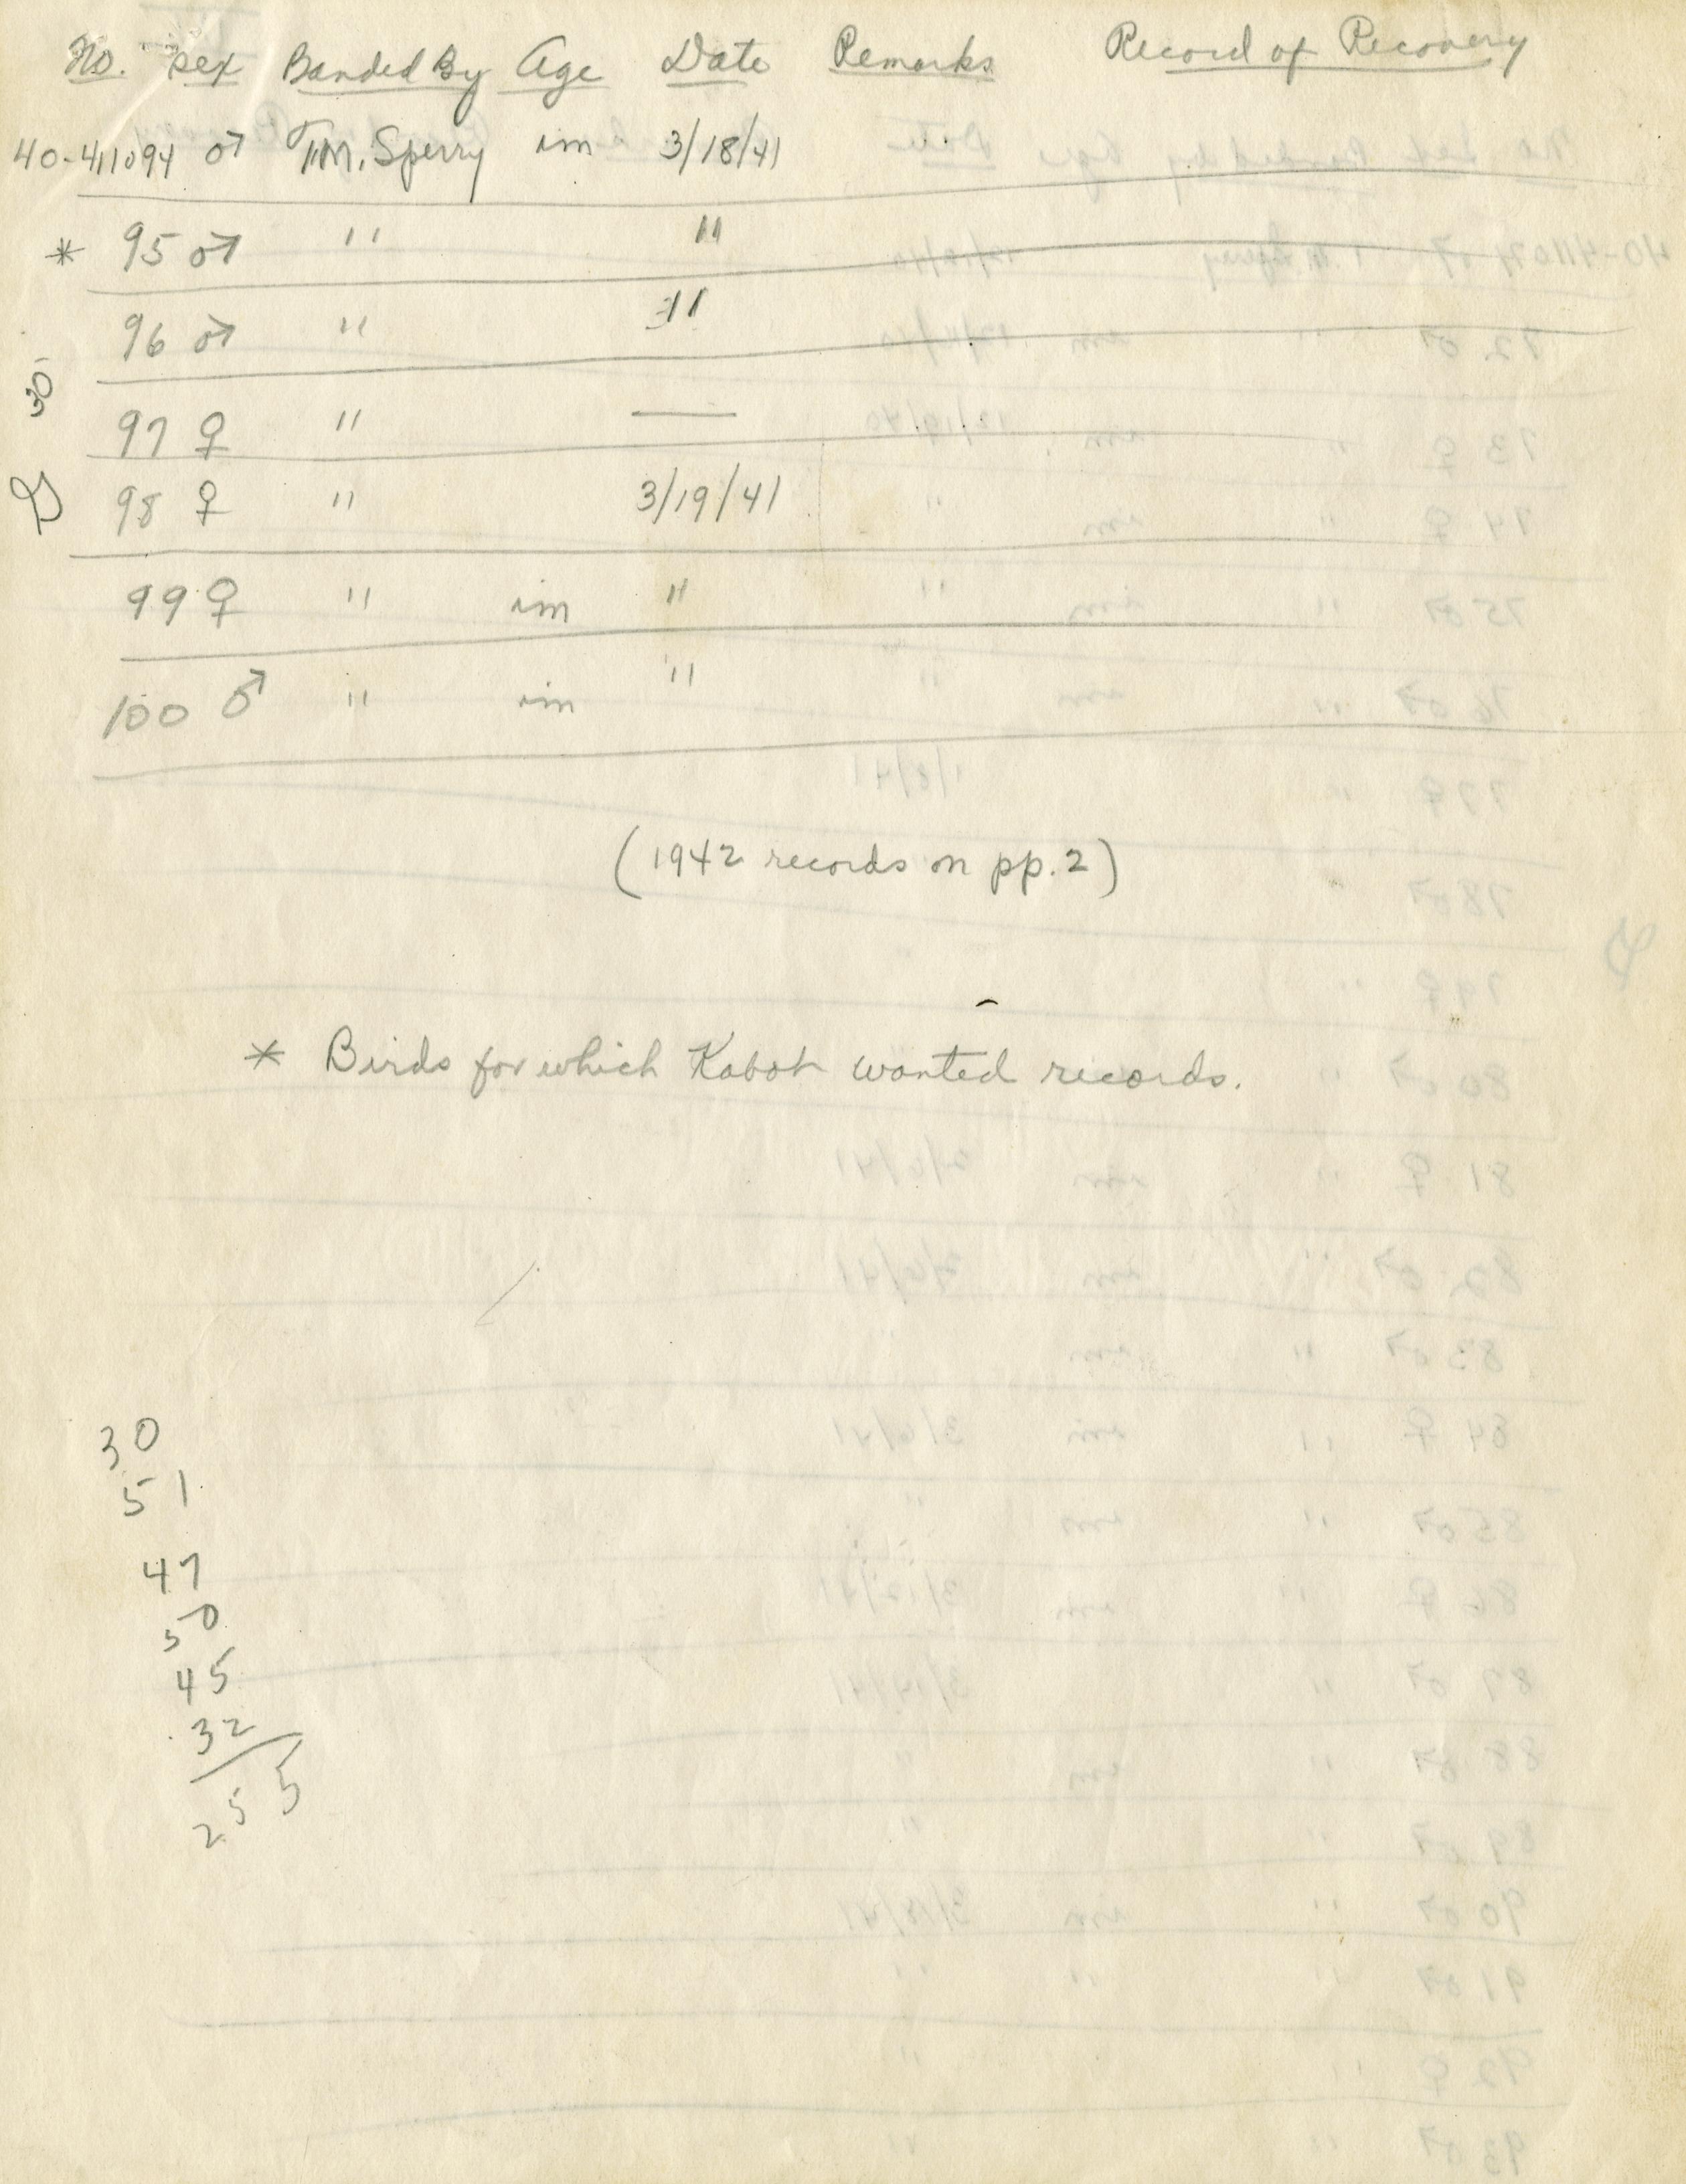 No. Sex Banded By Age Date Remarks Record of Recovery
40-411094 ♂ T.M. Sperry im 3/18/41
* 95 ♂ " "
96 ♂ " "
30
97 ♀ " —
98 ♀ " 3/19/41
99 ♀ " im "
100 ♂ " im "
(1942 records on pp. 2)
* Birds for which Kabat wanted records.
30
51
47
50
45
32
255